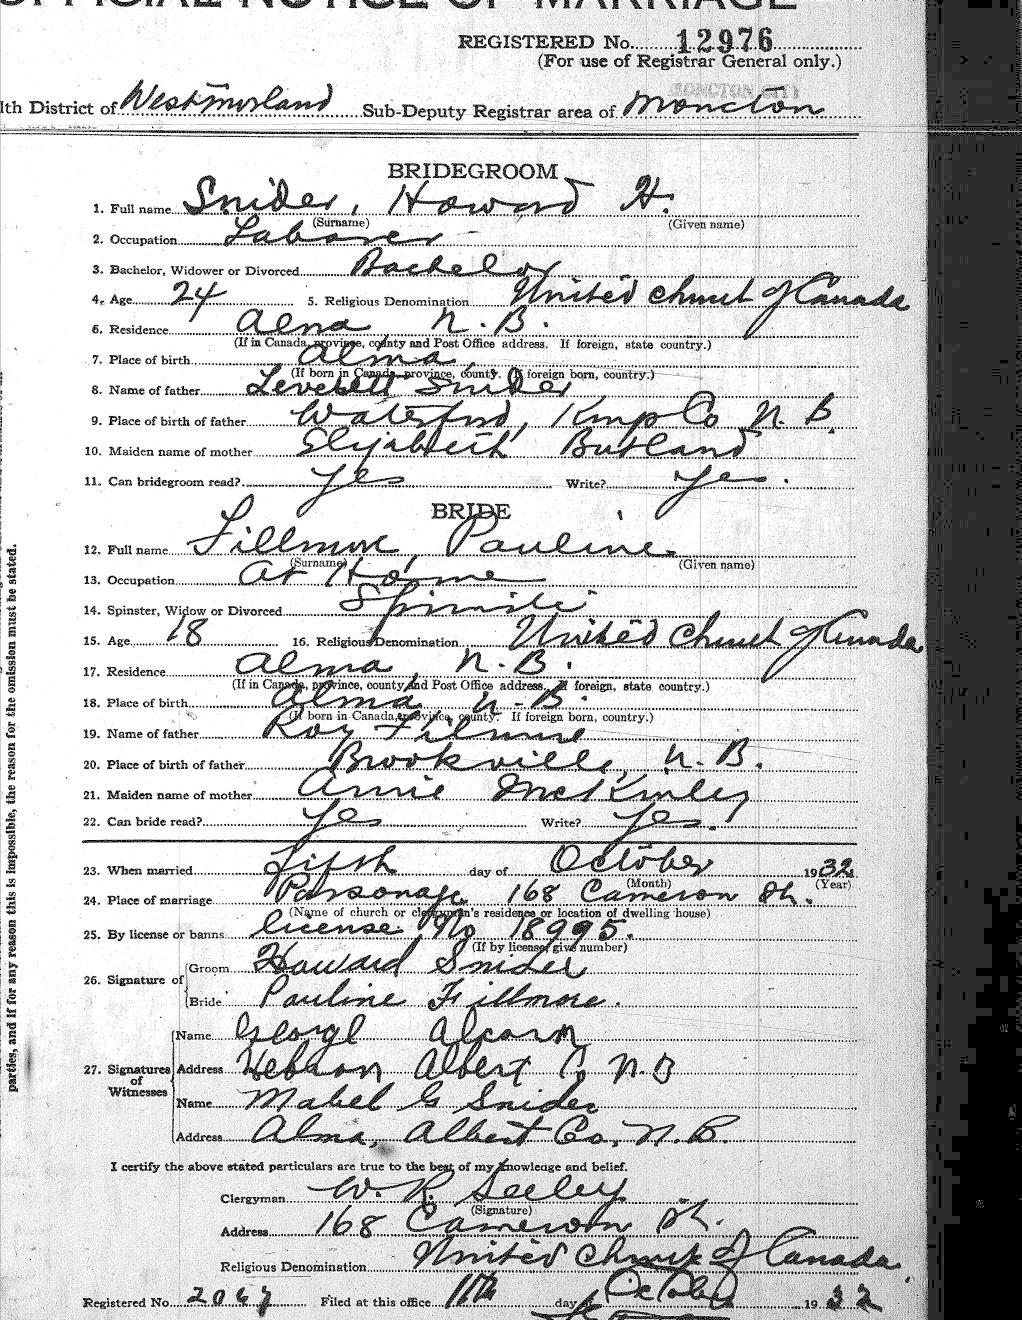 OFFICIAL NOTICE OF MARRIAGE
REGISTERED No. 12976
(For use of Registrar General only.)
MONCTON CITY
lth District of Westmorland Sub-Deputy Registrar area of Moncton
BRIDEGROOM
1. Full name Snider, Howard H.
(Surname) (Given name)
2. Occupation Laborer
3. Bachelor, Widower or Divorced Bachelor
4. Age 24 5. Religious Denomination United Church of Canada
6. Residence Alma N.B.
(If in Canada, province, county and Post Office address. If foreign, state country.)
7. Place of birth Alma
(If born in Canada, province, county. If foreign born, country.)
8. Name of father Leverett Snider
9. Place of birth of father Waterford, Kings Co N.B.
10. Maiden name of mother Elizabeth Butland
11. Can bridegroom read? Yes Write? Yes.
BRIDE
12. Full name Fillmore, Pauline
(Surname) (Given name)
13. Occupation At Home
14. Spinster, Widow or Divorced Spinster
15. Age 18 16. Religious Denomination United Church of Canada
17. Residence Alma N.B.
(If in Canada, province, county and Post Office address. If foreign, state country.)
18. Place of birth Alma N.B.
(If born in Canada, province, county. If foreign born, country.)
19. Name of father Roy Filmore
20. Place of birth of father Brookville, N.B.
21. Maiden name of mother Annie McKinley
22. Can bride read? Yes Write? Yes.
23. When married Fifth day of October 1932
(Month) (Year)
24. Place of marriage Parsonage, 168 Cameron St.
(Name of church or clergyman's residence or location of dwelling house)
25. By license or banns License No 18995.
(If by license, give number)
26. Signature of Groom Howard Snider
Bride Pauline Fillmore.
27. Signatures of Witnesses Name George Alcorn
Address Hebron Albert C. N.B
Name Mabel G Snider
Address Alma, Albert Co. N.B.
I certify the above stated particulars are true to the best of my knowledge and belief.
Clergyman W. R. Seeley
(Signature)
Address 168 Cameron St.
Religious Denomination United Church of Canada.
Registered No. 2067 Filed at this office 11th day of October 1932
parties, and if for any reason this is impossible, the reason for the omission must be stated.